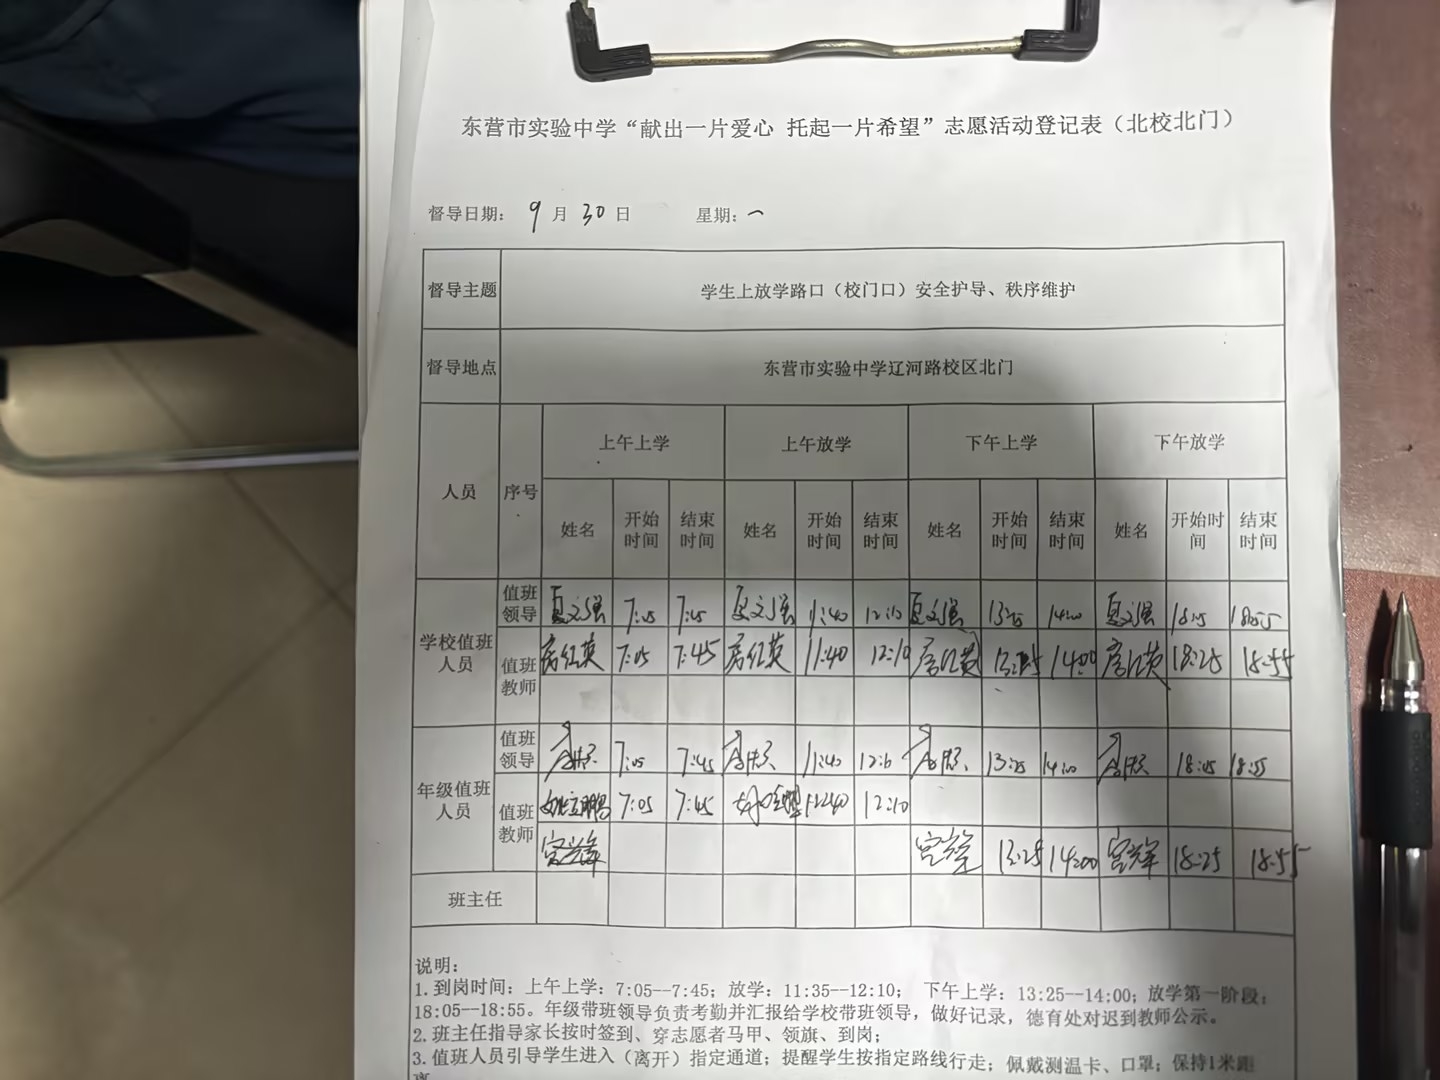 东营市实验中学“献出一片爱心 托起一片希望”志愿活动登记表（北校北门）
督导日期： 9 月 30 日 星期：一
督导主题 学生上放学路口（校门口）安全护导、秩序维护
督导地点 东营市实验中学辽河路校区北门
人员 序号 上午上学 上午放学 下午上学 下午放学
姓名 开始时间 结束时间 姓名 开始时间 结束时间 姓名 开始时间 结束时间 姓名 开始时间 结束时间
学校值班人员
值班领导 夏文强 7:05 7:45 夏文强 11:40 12:10 夏文强 13:25 14:00 夏文强 18:55
值班教师 房红英 7:05 7:45 房红英 11:40 12:10 房红英 14:00 房红英 18:25 18:55
年级值班人员
值班领导 7:05 7:45 11:40 13:25 14:00 18:55
值班教师 7:05 7:45 12:10
13:25 14:00 18:25 18:55
班主任
说明：
1.到岗时间：上午上学：7:05--7:45；放学：11:35--12:10； 下午上学：13:25--14:00；放学第一阶段：
18:05--18:55。年级带班领导负责考勤并汇报给学校带班领导，做好记录，德育处对迟到教师公示。
2.班主任指导家长按时签到、穿志愿者马甲、领旗、到岗；
3.值班人员引导学生进入（离开）指定通道；提醒学生按指定路线行走；佩戴测温卡、口罩；保持1米距